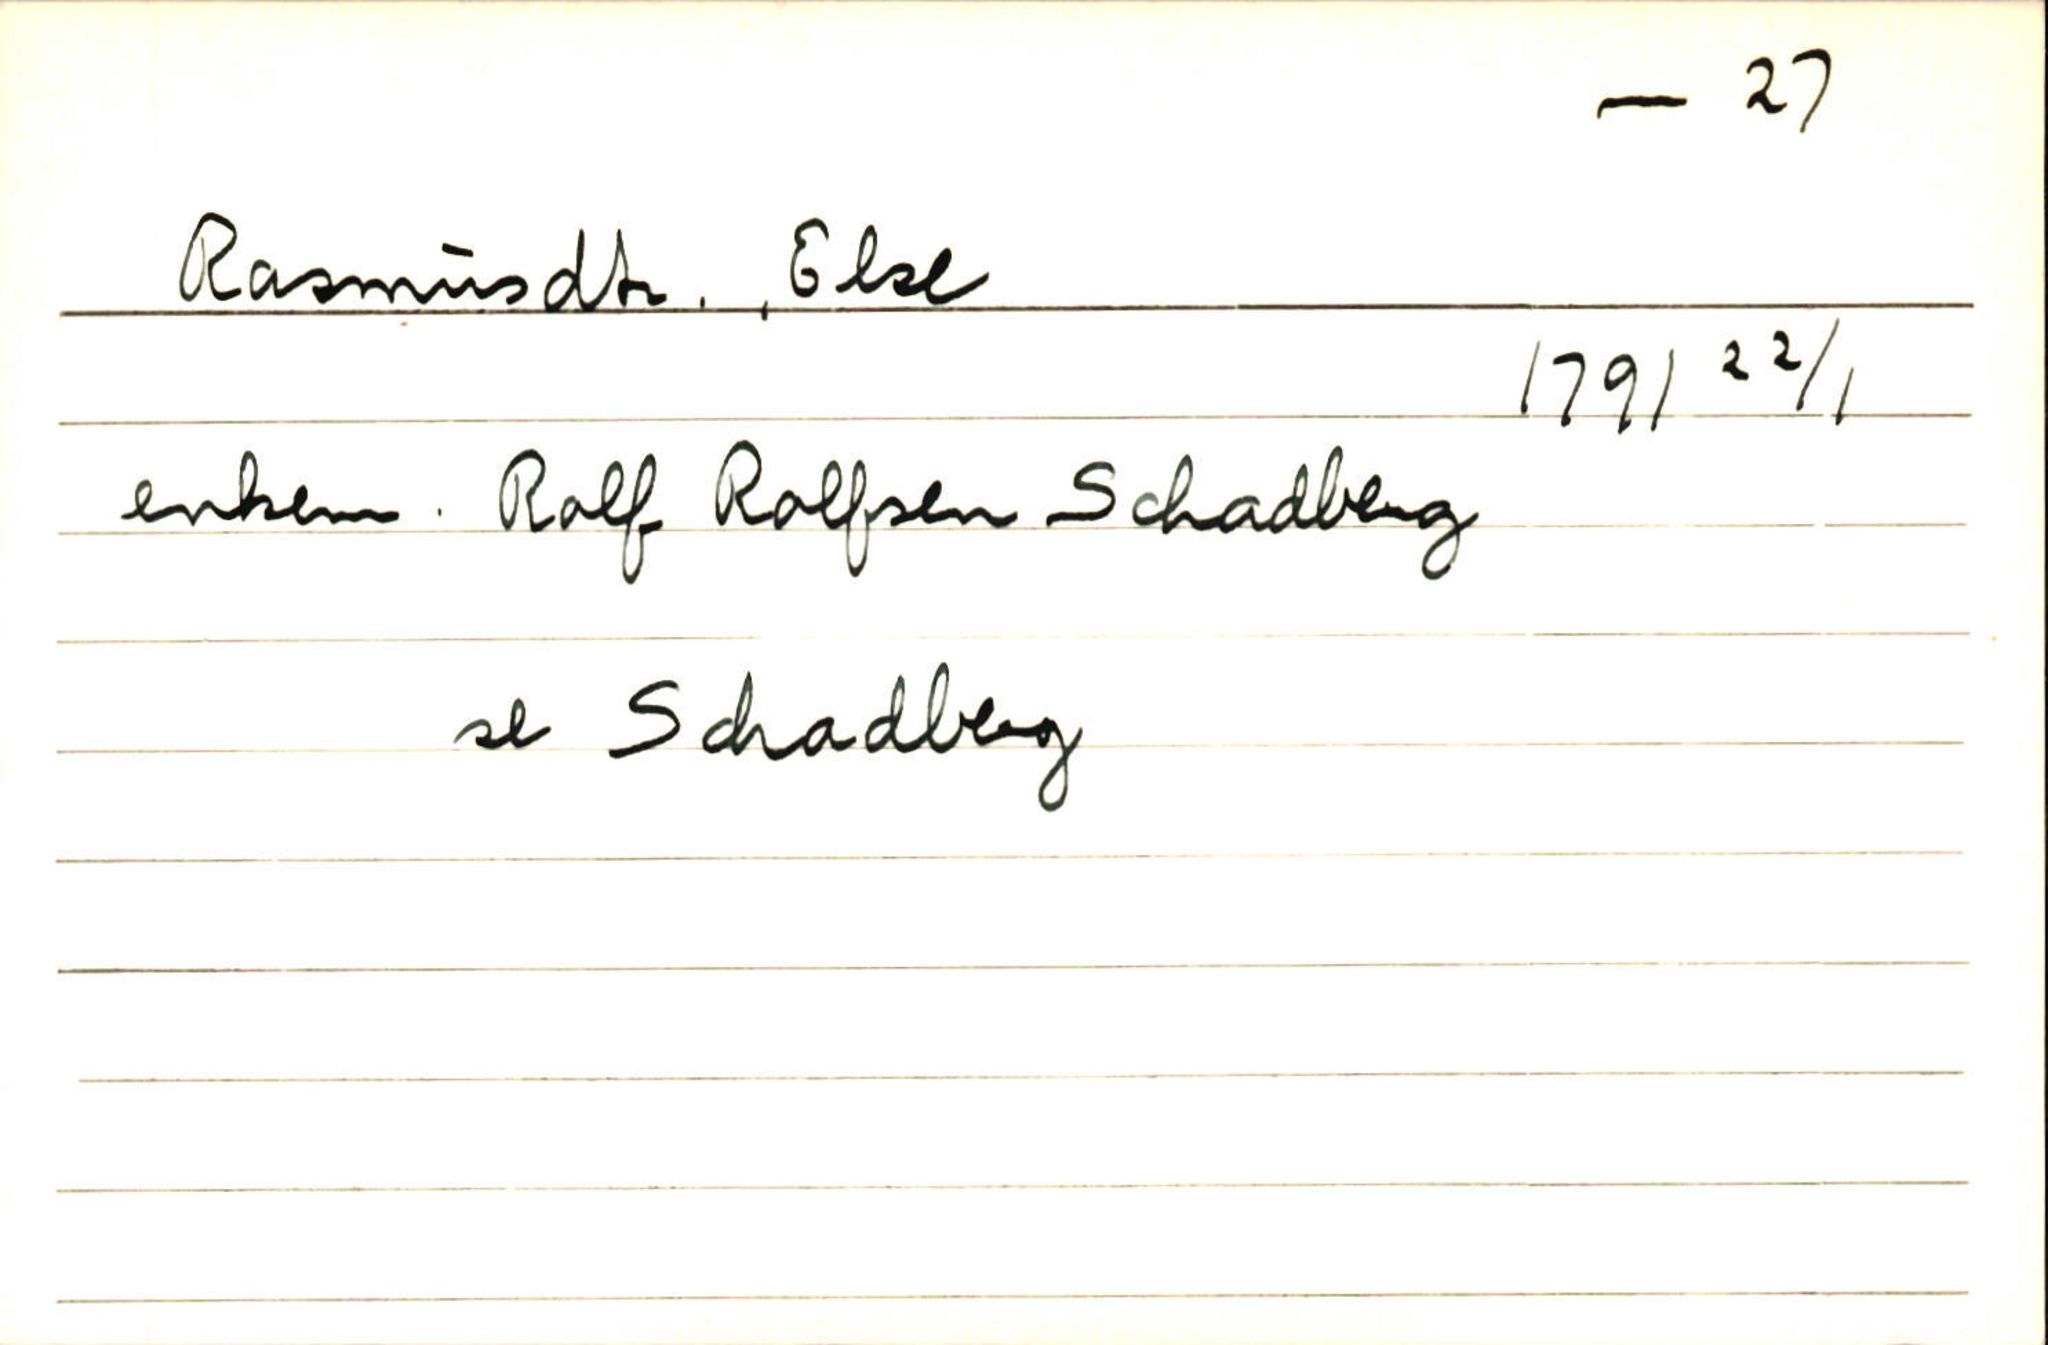 — 27
Rasmusdtr., Else
1791 22/1
enkem. Rolf Rolfsen Schadberg
se Schadberg